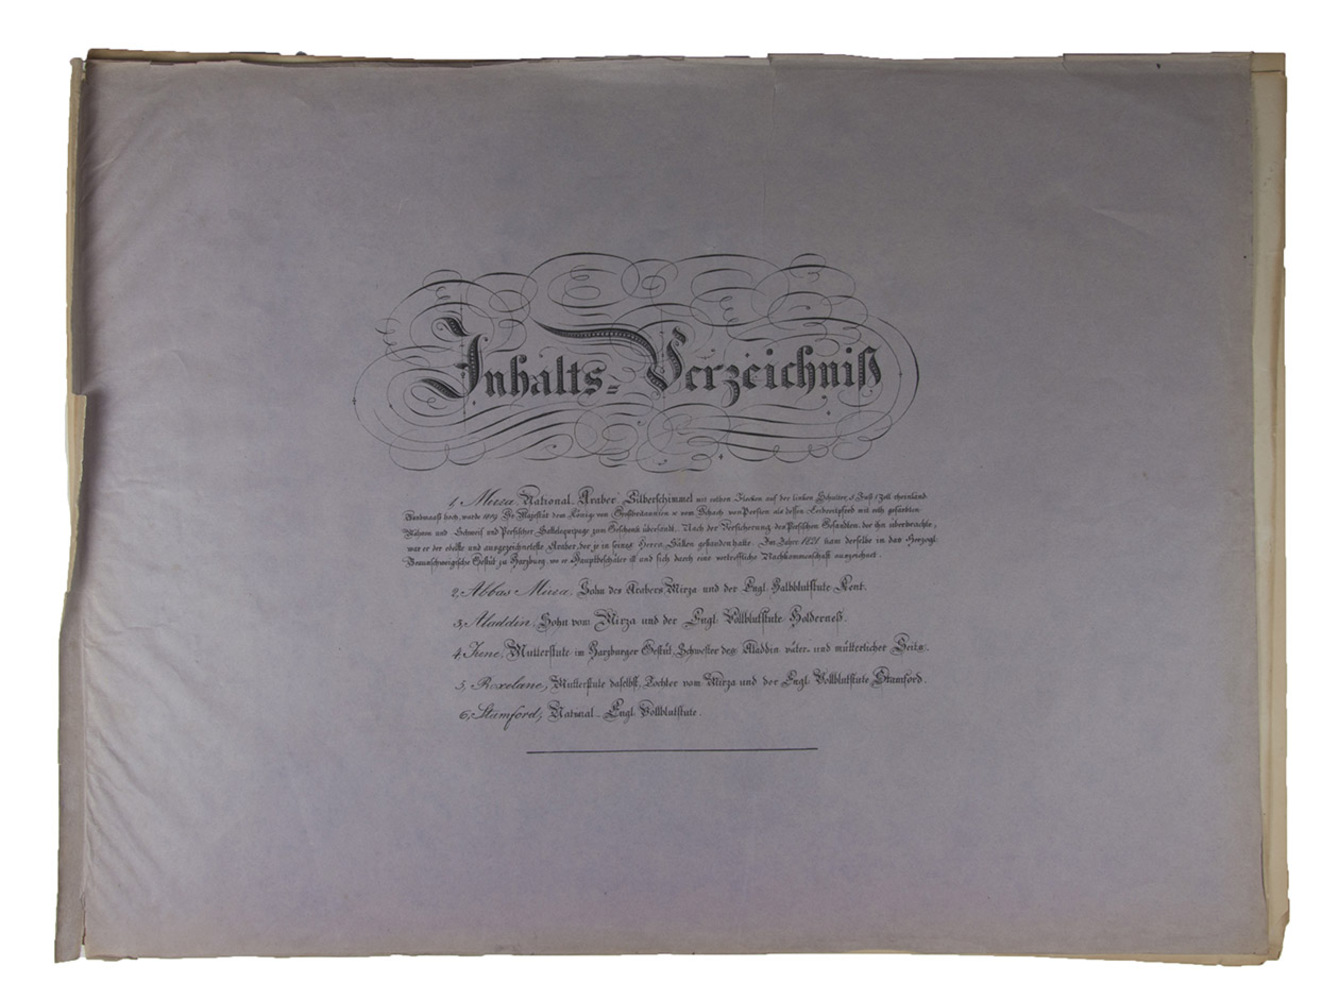 Inhalts-Verzeichniß
1, Mirza, National-Araber Silberschimmel mit rothen Flecken auf der linken Schulter, 5 Fuß 1 Zoll rheinländ.
Bandmaaß hoch, wurde 1819 Sr. Majestät dem Könige von Großbritannien v. vom Schach von Persien als dessen Leibreitpferd mit roth gefärbten
Mähnen und Schweif und Persischer Sattelequipage zum Geschenk übersandt. Nach der Versicherung des Persischen Gesandten, der ihn überbrachte,
war er der edelste und ausgezeichnetste Araber, der je in seines Herrn Ställen gestanden hatte. Im Jahre 1821 kam derselbe in das Herzogl:
Braunschweigische Gestüt zu Harzburg, wo er Hauptbeschäler ist und sich durch eine vortreffliche Nachkommenschaft auszeichnet.
2, Abbas Mirza, Sohn des Arabers Mirza und der Engl. Halbblutstute Kent.
3, Aladdin, Sohn vom Mirza und der Engl. Vollblutstute Holderneß.
4, Irene, Mutterstute im Harzburger Gestüt, Schwester des Aladdin väter- und mütterlicher Seits.
5, Roxelane, Mutterstute daselbst, Tochter vom Mirza und der Engl. Vollblutstute Stamford.
6, Stamford, National-Engl. Vollblutstute.